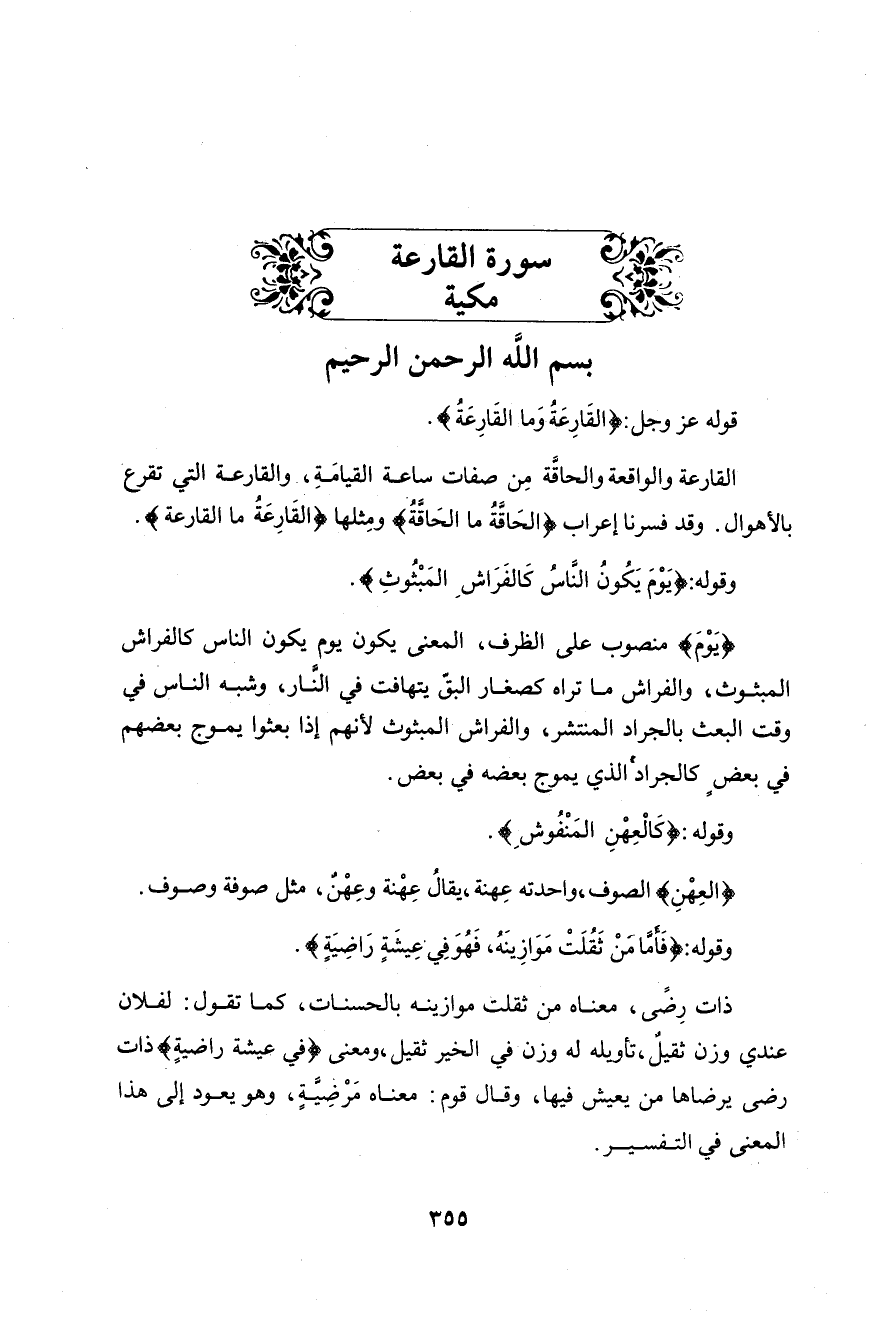 سورة القارعة
مكية
بسم اللَّه الرحمن الرحيم
قوله عز وجل: ﴿القَارِعَةُ وَما القَارِعَةُ﴾.
القارعة والواقعة والحاقَّة مِن صفات ساعة القيامَةِ، والقارعة التي تقرع
بالأهوال. وقد فسرنا إعراب ﴿الحَاقَّةُ ما الحَاقَّةُ﴾ ومِثلها ﴿القَارِعَةُ ما القارعة﴾.
وقوله: ﴿يَوْمَ يَكُونُ النَّاسُ كَالفَرَاشِ المَبْثُوثِ﴾.
﴿يَوْمَ﴾ منصوب على الظرف، المعنى يكون يوم يكون الناس كالفراش
المبثوث، والفراش ما تراه كصغار البقّ يتهافت في النَّار، وشبه الناس في
وقت البعث بالجراد المنتشر، والفراش المبثوث لأنهم إذا بعثوا يموج بعضهم
في بعضٍ كالجراد الذي يموج بعضه في بعض.
وقوله: ﴿كَالْعِهْنِ المَنْفُوشِ﴾.
﴿العِهْنِ﴾ الصوف، واحدته عِهنة، يقالُ عِهْنة وعِهْنٌ، مثل صوفة وصوف.
وقوله: ﴿فَأَمَّا مَنْ ثَقُلَتْ مَوَازِينَهُ، فَهُوَ فِي عِيشَةٍ رَاضِيَةٍ﴾.
ذات رِضًى، معناه من ثقلت موازينه بالحسنات، كما تقول: لفلان
عندي وزن ثقيلٌ، تأويله له وزن في الخير ثقيل، ومعنى ﴿في عيشة راضيةٍ﴾ ذات
رضى يرضاها من يعيش فيها، وقال قوم: معناه مَرْضِيَّةٍ، وهو يعود إلى هذا
المعنى في التفسير.
٣٥٥